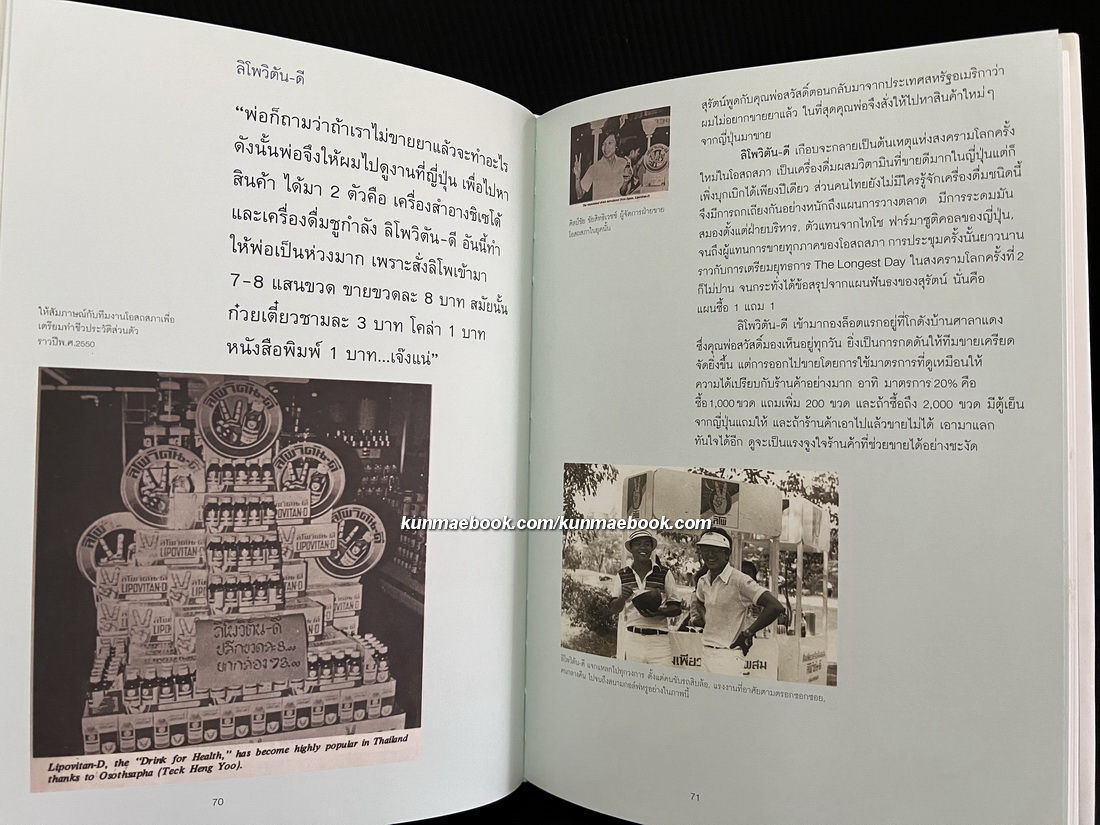 ลิโพวิตัน-ดี
“พ่อก็ถามว่าถ้าเราไม่ขายยาแล้วจะทำอะไร
ดังนั้นพ่อจึงให้ผมไปดูงานที่ญี่ปุ่น เพื่อไปหา
สินค้า ได้มา 2 ตัวคือ เครื่องสำอางชิเซโด้
และเครื่องดื่มชูกำลัง ลิโพวิตัน-ดี อันนี้ทำ
ให้พ่อเป็นห่วงมาก เพราะสั่งลิโพเข้ามา
7-8 แสนขวด ขายขวดละ 8 บาท สมัยนั้น
ก๋วยเตี๋ยวชามละ 3 บาท โคล่า 1 บาท
หนังสือพิมพ์ 1 บาท...เจ๊งแน่”
ให้สัมภาษณ์กับทีมงานโอสถสภาเพื่อ
เตรียมทำชีวประวัติส่วนตัว
ราวปีพ.ศ.2550
ลิโพวิตัน-ดี
ลิโพวิตัน-ดี
ลิโพวิตัน-ดี
LIPOVITAN-D
LIPOVITAN-D
LIPOVITAN-D
ลิโพวิตัน-ดี
ปลีกขวดละ 8.00
ยกกล่อง 78.00
Lipovitan-D, the “Drink for Health,” has become highly popular in Thailand
thanks to Osothsapha (Teck Heng Yoo).
70
สุรัตน์พูดกับคุณพ่อสวัสดิ์ตอนกลับมาจากประเทศสหรัฐอเมริกาว่า
ผมไม่อยากขายยาแล้ว ในที่สุดคุณพ่อจึงสั่งให้ไปหาสินค้าใหม่ๆ
จากญี่ปุ่นมาขาย
ลิโพวิตัน-ดี เกือบจะกลายเป็นต้นเหตุแห่งสงครามโลกครั้ง
ใหม่ในโอสถสภา เป็นเครื่องดื่มผสมวิตามินที่ขายดีมากในญี่ปุ่นแต่ก็
เพิ่งบุกเบิกได้เพียงปีเดียว ส่วนคนไทยยังไม่มีใครรู้จักเครื่องดื่มชนิดนี้
จึงมีการถกเถียงกันอย่างหนักถึงแผนการวางตลาด มีการระดมมัน
สมองตั้งแต่ฝ่ายบริหาร, ตัวแทนจากไทโช ฟาร์มาซูติคอลของญี่ปุ่น,
จนถึงผู้แทนการขายทุกภาคของโอสถสภา การประชุมครั้งนั้นยาวนาน
ราวกับการเตรียมยุทธการ The Longest Day ในสงครามโลกครั้งที่ 2
ก็ไม่ปาน จนกระทั่งได้ข้อสรุปจากแผนฟันธงของสุรัตน์ นั่นคือ
แผนซื้อ 1 แถม 1
ลิโพวิตัน-ดี เข้ามากองล็อตแรกอยู่ที่โกดังบ้านศาลาแดง
ซึ่งคุณพ่อสวัสดิ์มองเห็นอยู่ทุกวัน ยิ่งเป็นการกดดันให้ทีมขายเครียด
จัดยิ่งขึ้น แต่การออกไปขายโดยการใช้มาตรการที่ดูเหมือนให้
ความได้เปรียบกับร้านค้าอย่างมาก อาทิ มาตรการ 20% คือ
ซื้อ 1,000 ขวด แถมเพิ่ม 200 ขวด และถ้าซื้อถึง 2,000 ขวด มีตู้เย็น
จากญี่ปุ่นแถมให้ และถ้าร้านค้าเอาไปแล้วขายไม่ได้ เอามาแลก
ทันใจได้อีก ดูจะเป็นแรงจูงใจร้านค้าที่ช่วยขายได้อย่างชะงัด
ผู้จัดการฝ่ายขาย
โอสถสภาในยุคนั้น
kunmaebook.com/kunmaebook.com
ลิโพ
ลิโพวิตัน-ดี แจกแหลกไปทุกวงการ ตั้งแต่คนขับรถสิบล้อ, แรงงานที่อาศัยตามตรอกซอกซอย,
คนกลางคืน ไปจนถึงสนามกอล์ฟหรูอย่างในภาพนี้
71